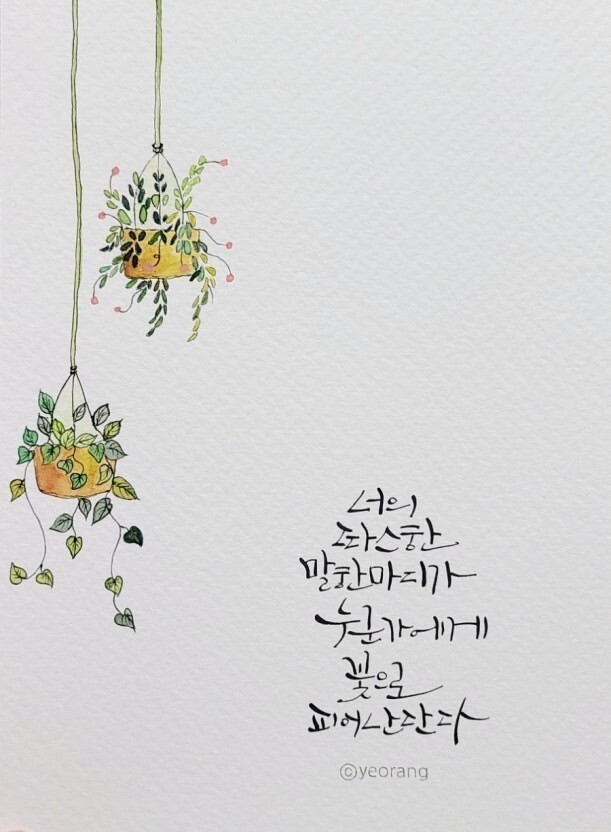 너의
따스한
말한마디가
누군가에게
꽃으로
피어난단다
©yeorang